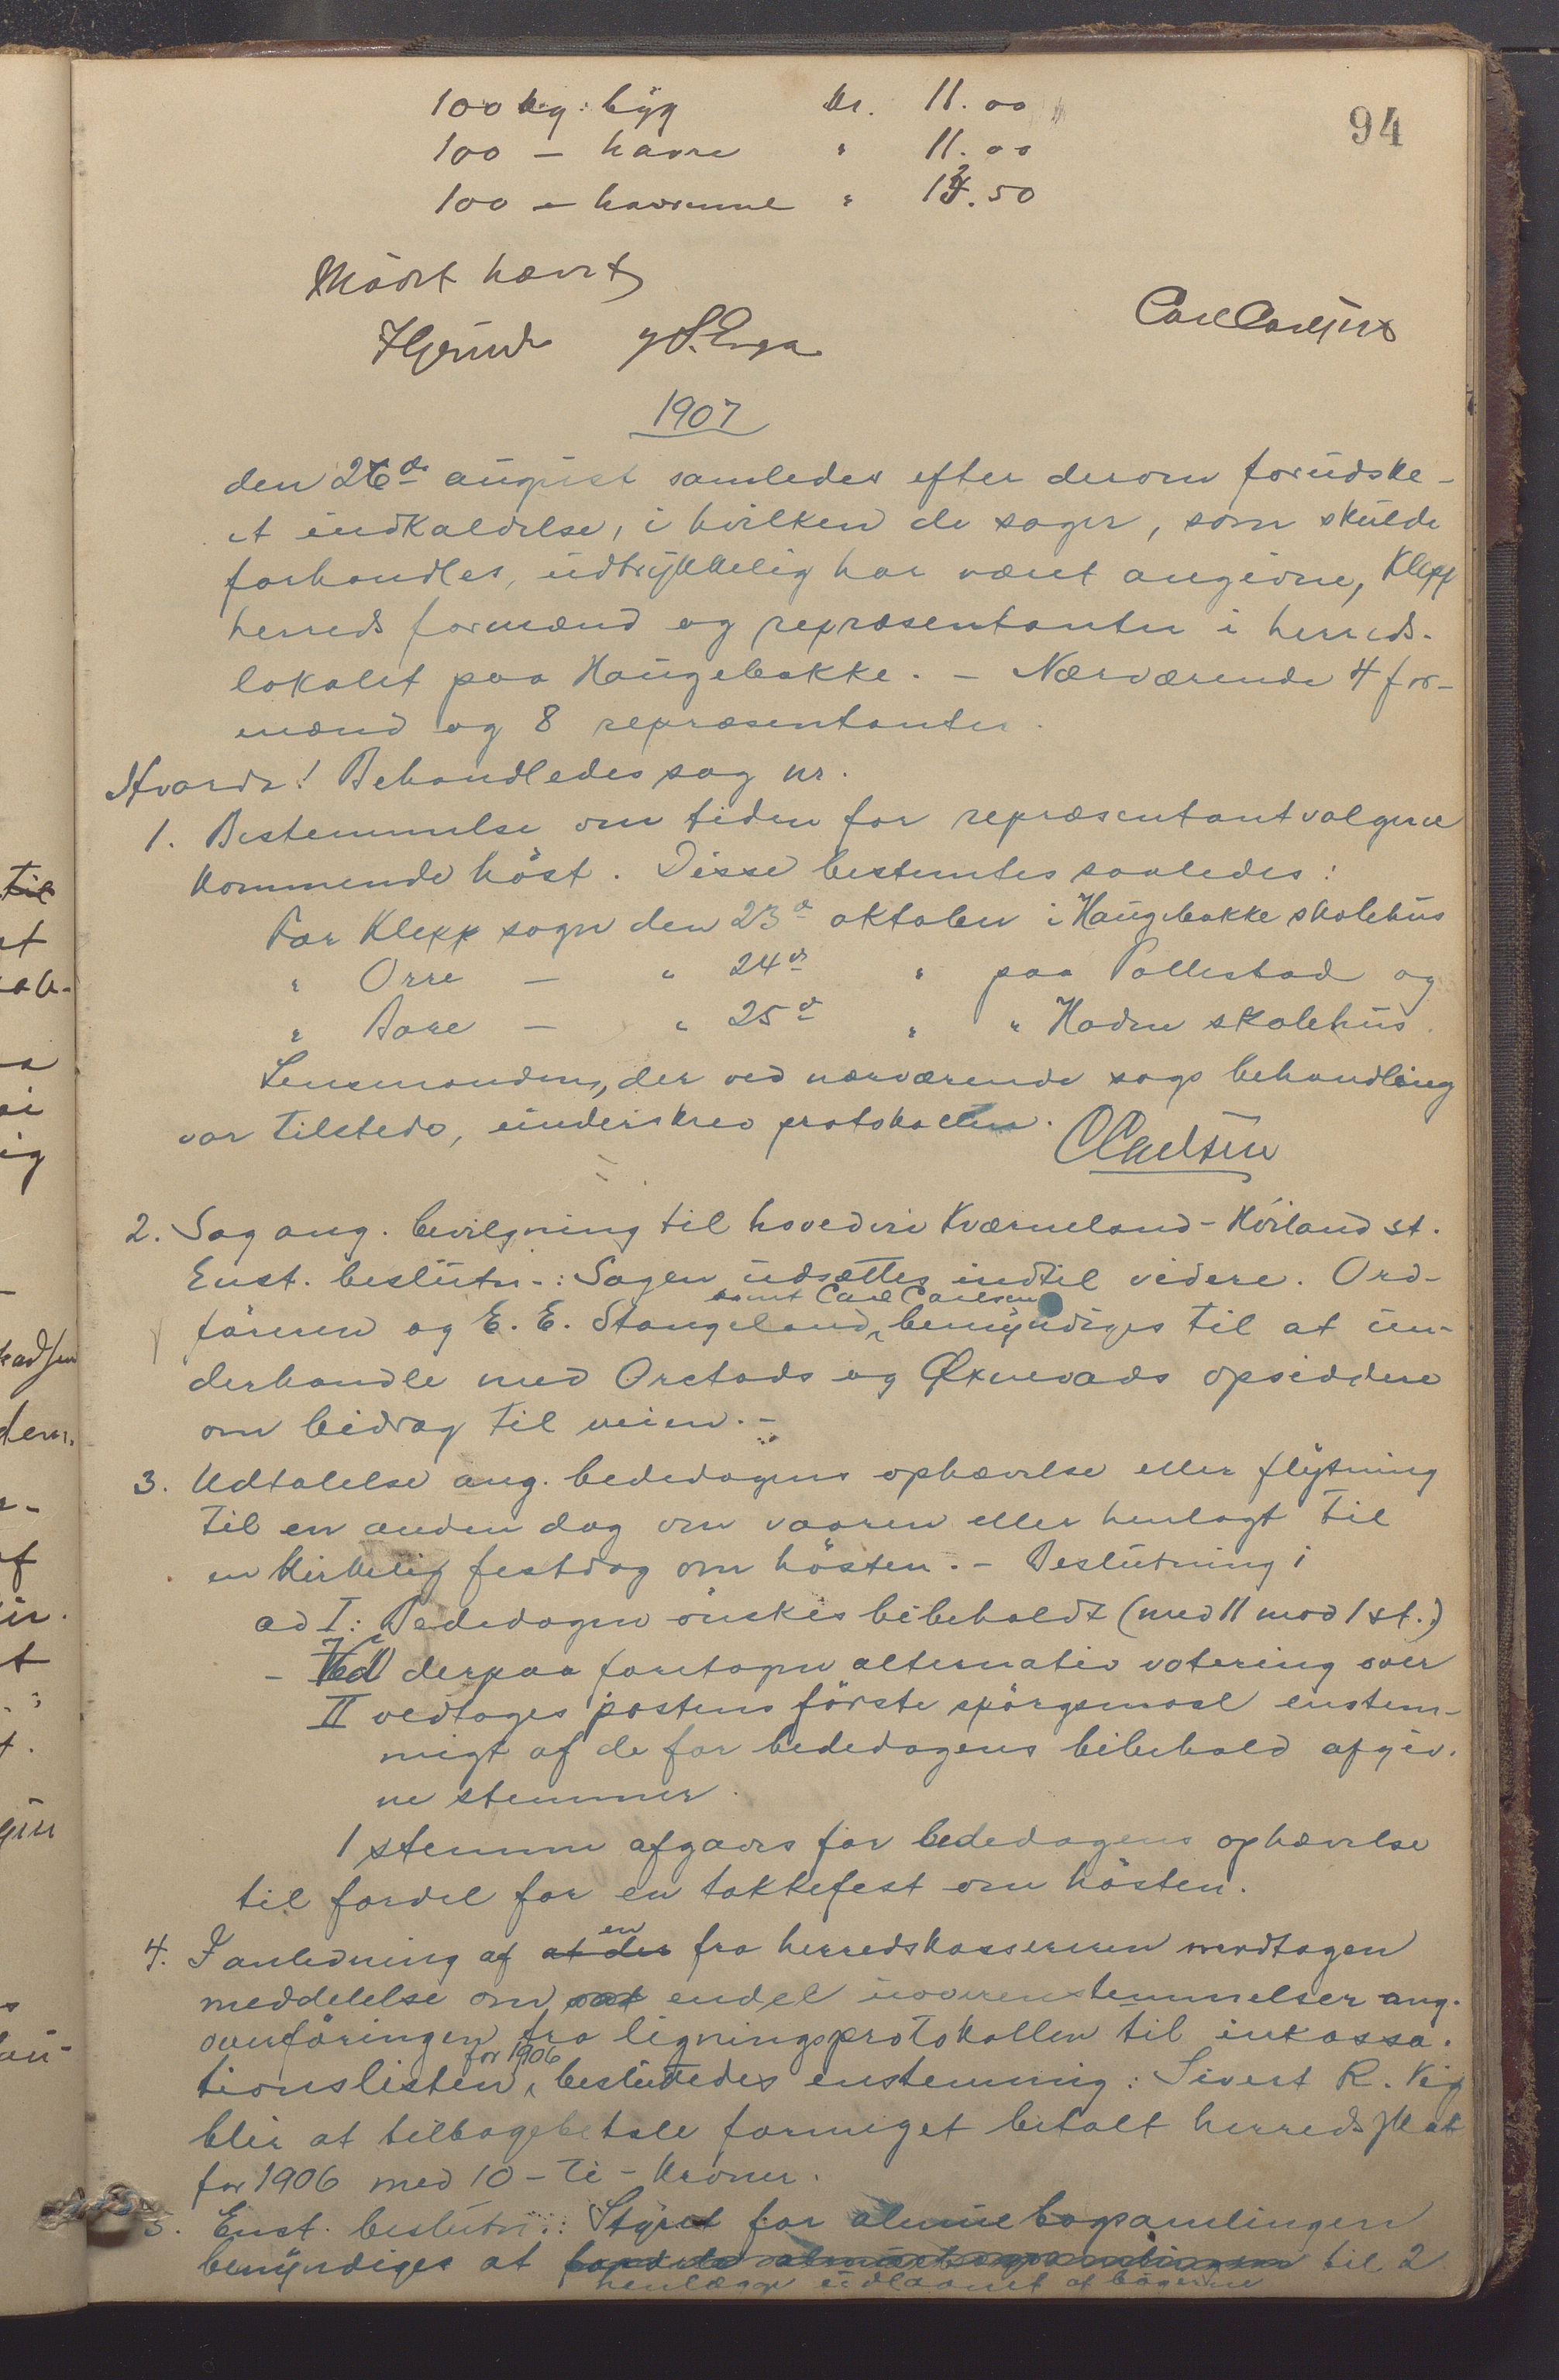 94
100 kg: byg kr. 11.00
100 — havre " 11.00
100 — havremel " 12.50
Mødet hævet
Carl Carlsen
1907
den 26de august samledes efter derom forudske-
et indkaldelse, i hvilken de sager, som skulde
forhandles, udtrykkelig har været angivne, Klepp
herreds formænd og repræsentanter i herreds-
lokalet paa Haugebakke. — Nærværende 4 for-
mænd og 8 repræsentanter.
Hvorda! Behandledes sag nr.
1. Bestemmelse om tiden for repræsentantvalgene
kommende høst. Disse bestemtes saaledes:
For Klepp sogn den 23de oktober i Haugebakke skolehus
" Orre — " 24de " paa Pollestad og
" Bore — " 25de " " Hodne skolehus.
Lensmanden, der ved nærværende sags behandling
var tilstede, underskrev protokollen. CCarlsen
2. Sag ang. bevilgning til hovedvei Kværneland-Høiland st.
Enst. beslutn.: Sagen udsættes indtil videre. Ord-
samt Carl Carlsen
føreren og E. E. Stangeland, bemyndiges til at un-
derhandle med Orstads og Øxnevads opsiddere
om bidrag til veien. —
3. Udtalelse ang. bededagens ophævelse eller flytning
til en anden dag om vaaren eller henlagt til
en kirkelig festdag om høsten. — Beslutning:
ad I: Bededagen ønskes bibeholdt (med 11 mod 1 st.)
— Ved derpaa foretagen alternativ votering over
II vedtages postens første spørgsmaal enstem-
migt af de for bededagens bibehold afgiv-
ne stemmer.
1 stemme afgaves for bededagens ophævelse
til fordel for en takkefest om høsten.
en
4. I anledning af at der fra herredskassereren modtagen
meddelelse om, endel uoverenstemmelser ang.
overføringen fra ligningsprotokollen til inkassa-
for 1906
tionslisten, besluttedes enstemmig: Sivert R. Vig
blir at tilbagebetale formeget betalt herredsskat
for 1906 med 10 - ti - kroner.
5. Enst. beslutn.: Styret for almuebogsamlingen
bemyndiges at til 2
henlægge udlaanet af bøgerne